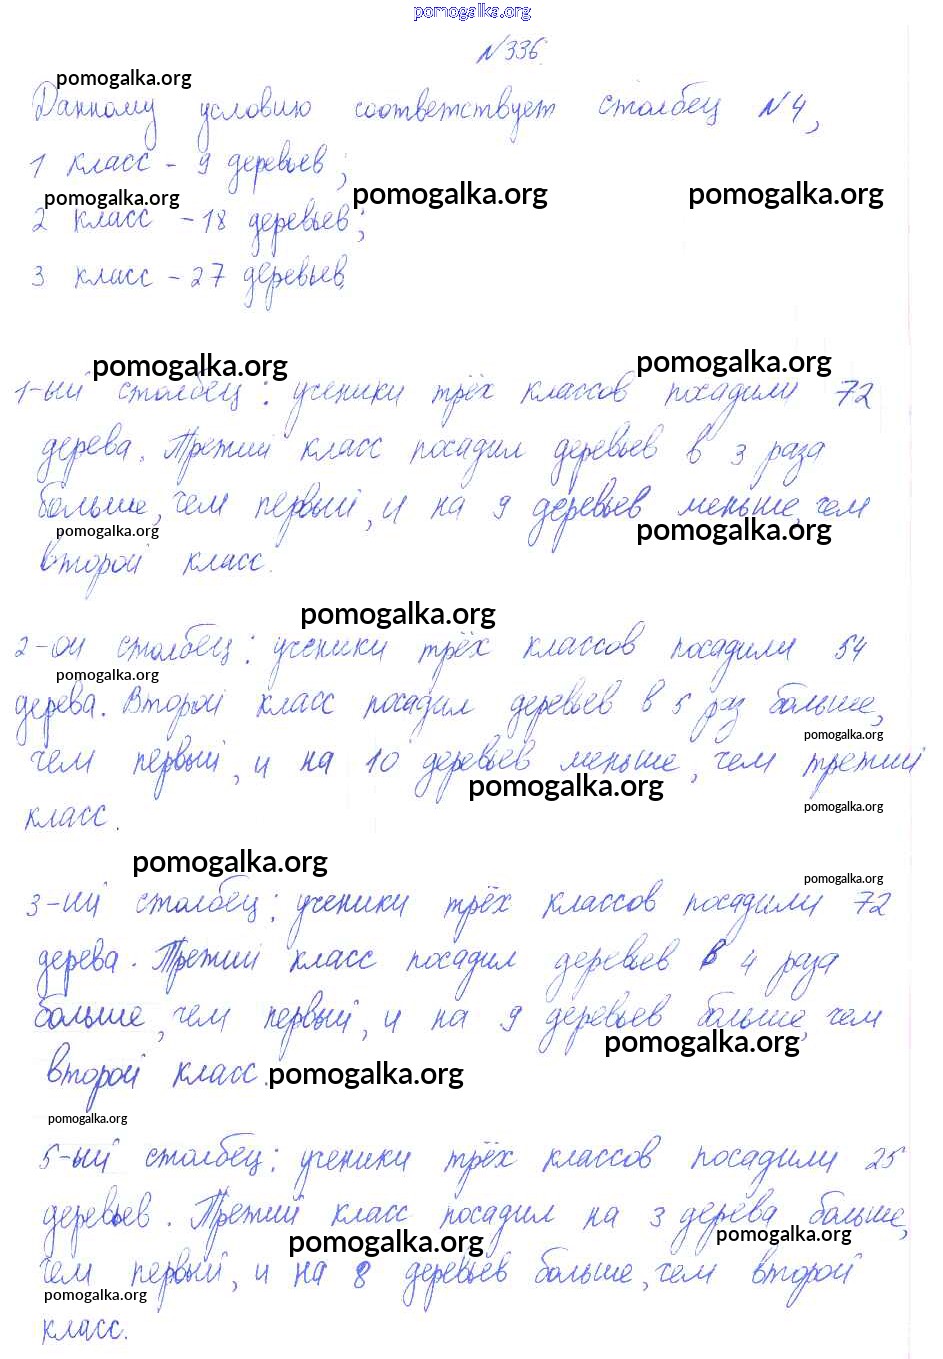 pomogalka.org
№336.
pomogalka.org
Данному условию соответствует столбец №4,
1 класс - 9 деревьев;
pomogalka.org pomogalka.org pomogalka.org
2 класс - 18 деревьев;
3 класс - 27 деревьев.
pomogalka.org pomogalka.org
1-ый столбец: ученики трёх классов посадили 72
дерева. Третий класс посадил деревьев в 3 раза
больше, чем первый, и на 9 деревьев меньше, чем
pomogalka.org pomogalka.org
второй класс.
pomogalka.org
2-ой столбец: ученики трёх классов посадили 54
pomogalka.org
дерева. Второй класс посадил деревьев в 5 раз больше,
pomogalka.org
чем первый, и на 10 деревьев меньше, чем третий
pomogalka.org pomogalka.org
класс.
pomogalka.org pomogalka.org
3-ий столбец: ученики трёх классов посадили 72
дерева. Третий класс посадил деревьев в 4 раза
больше, чем первый, и на 9 деревьев больше, чем
pomogalka.org
второй класс.
pomogalka.org
pomogalka.org
5-ый столбец: ученики трёх классов посадили 25
деревьев. Третий класс посадил на 3 дерева больше,
pomogalka.org pomogalka.org
чем первый, и на 8 деревьев больше, чем второй
pomogalka.org
класс.